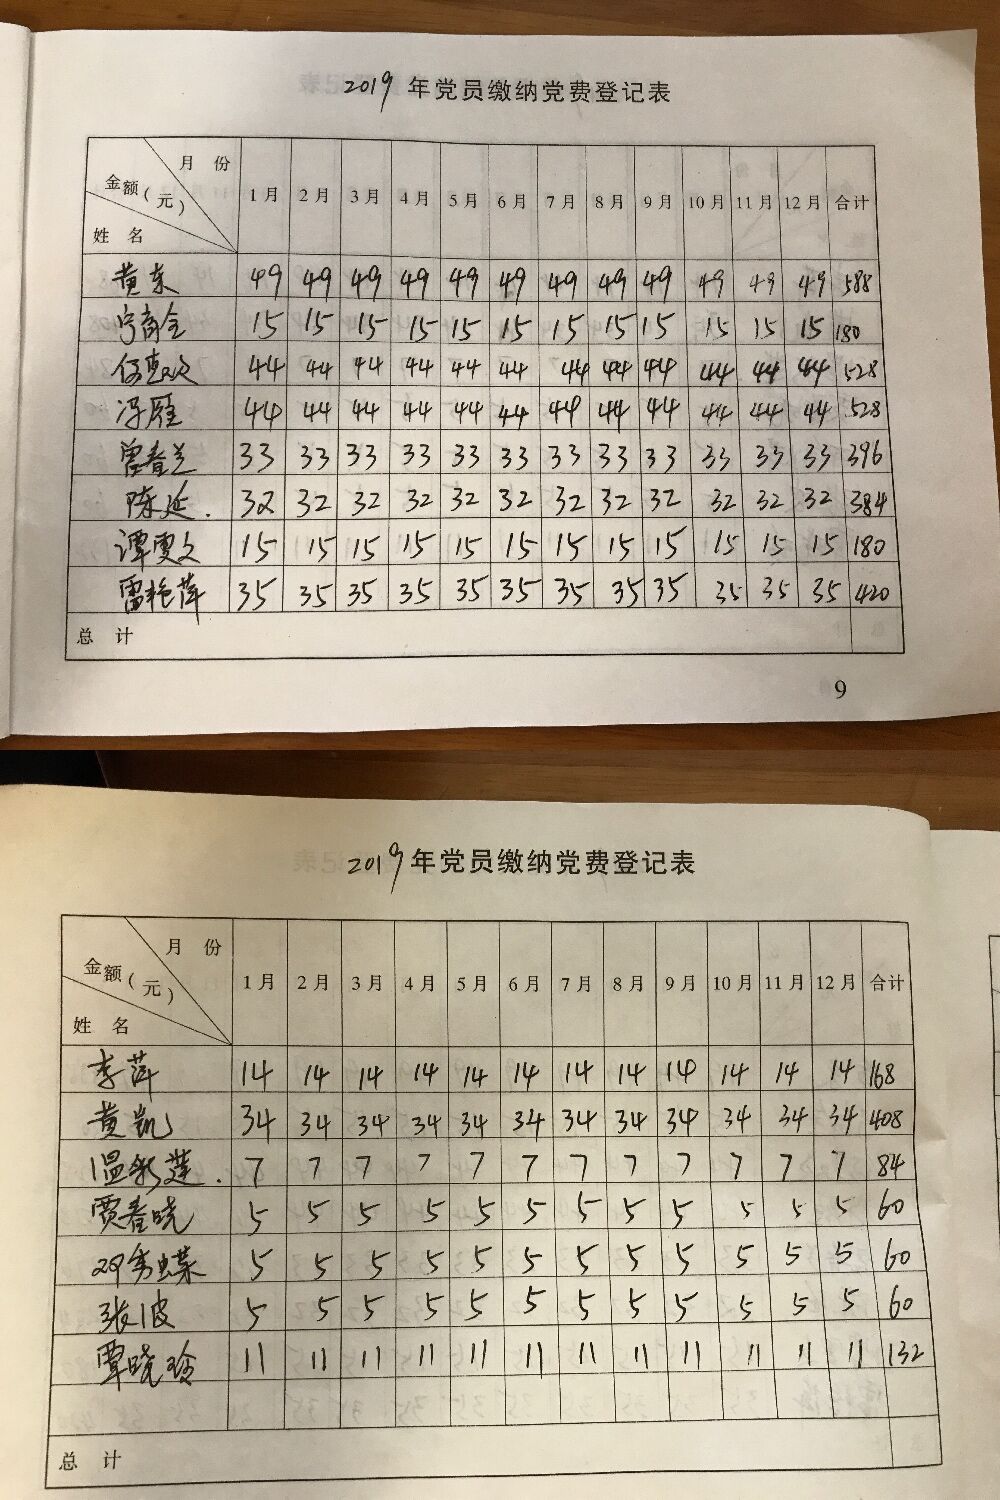 2019年党员缴纳党费登记表
月 份
金额(元)
姓 名
1月 2月 3月 4月 5月 6月 7月 8月 9月 10月 11月 12月 合计
黄东 49 49 49 49 49 49 49 49 49 49 49 49 588
宁商全 15 15 15 15 15 15 15 15 15 15 15 15 180
44 44 44 44 44 44 44 44 44 44 44 44 528
冯雁 44 44 44 44 44 44 44 44 44 44 44 44 528
曾春兰 33 33 33 33 33 33 33 33 33 33 33 33 396
陈延. 32 32 32 32 32 32 32 32 32 32 32 32 384
谭雯文 15 15 15 15 15 15 15 15 15 15 15 15 180
雷艳萍 35 35 35 35 35 35 35 35 35 35 35 35 420
总 计
9
2019年党员缴纳党费登记表
月 份
金额(元)
姓 名
1月 2月 3月 4月 5月 6月 7月 8月 9月 10月 11月 12月 合计
李萍 14 14 14 14 14 14 14 14 14 14 14 14 168
黄凯 34 34 34 34 34 34 34 34 34 34 34 34 408
温彩莲. 7 7 7 7 7 7 7 7 7 7 7 7 84
贾春晓 5 5 5 5 5 5 5 5 5 5 5 5 60
邓秀蝶 5 5 5 5 5 5 5 5 5 5 5 5 60
张波 5 5 5 5 5 5 5 5 5 5 5 5 60
覃晓玲 11 11 11 11 11 11 11 11 11 11 11 11 132
总 计